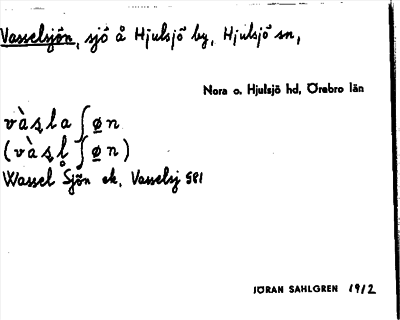 Vasselsjön, sjö å Hjulsjö by, Hjulsjö sn,
Nora o. Hjulsjö hd, Örebro län
vàşla ʃøn
(vàşl̥ ʃøn)
Wassel Sjön ek. Vasselsj GS1
JÖRAN SAHLGREN 1912